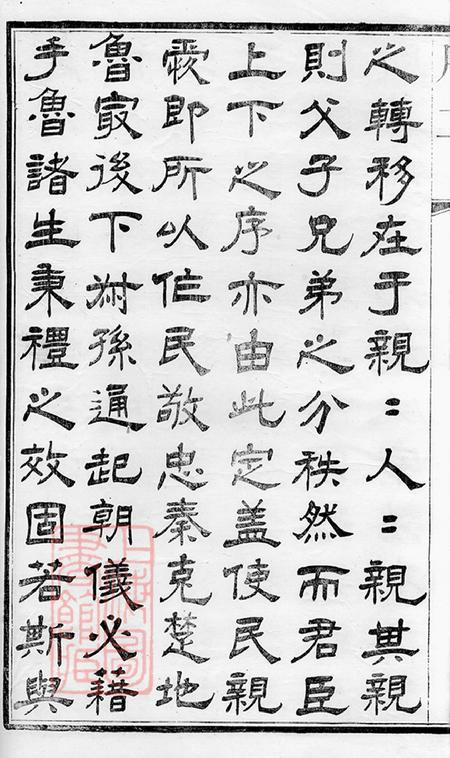 之轉移在于親〻人〻親其親
則父子兄弟之分秩然而君臣
上下之序亦由此定蓋使民親
厥即所以作民敬忠秦克楚地
魯㝡後下叔孫通起朝儀必藉
手魯諸生秉禮之效固若斯與